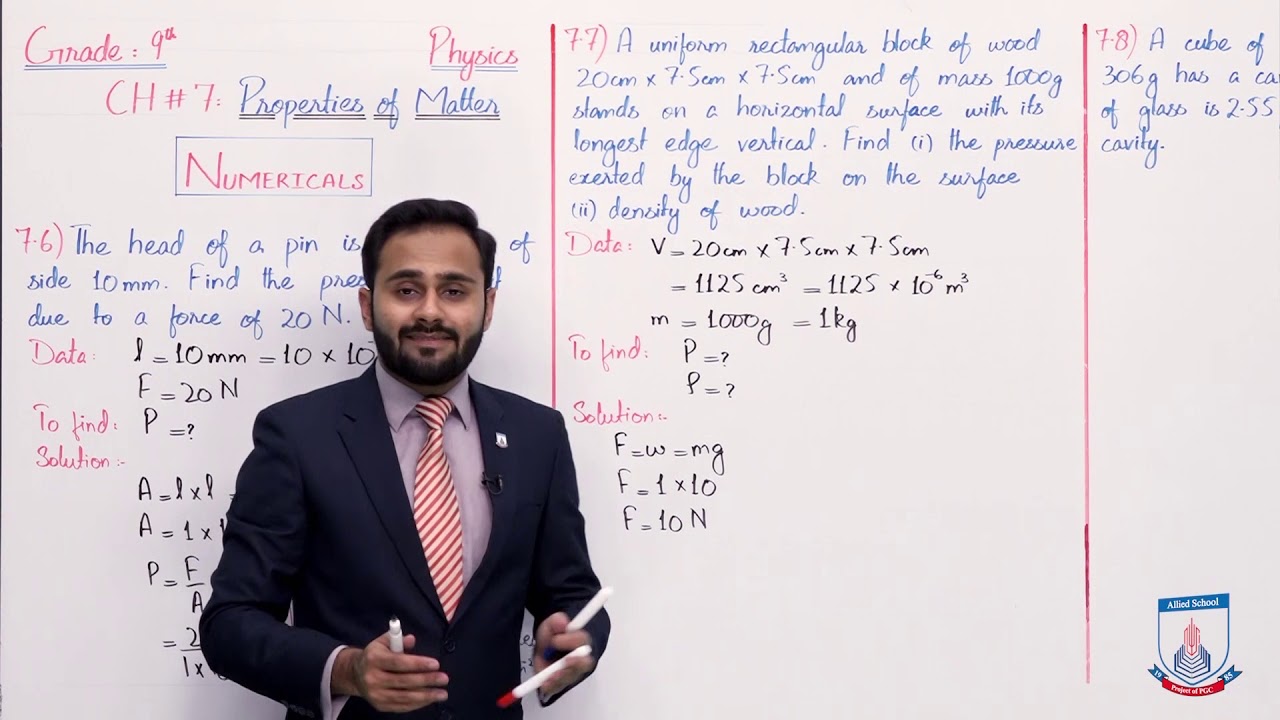 Grade: 9th
Physics
CH # 7: Properties of Matter
NUMERICALS
7.6) The head of a pin is of
side 10mm. Find the
due to a force of 20 N.
Data: l = 10mm = 10 × 10
F = 20 N
To find: P = ?
Solution:-
A = l × l =
A = 1 ×
P = F
A
=
1 ×
7.7) A uniform rectangular block of wood
20cm × 7.5cm × 7.5cm and of mass 1000g
stands on a horizontal surface with its
longest edge vertical. Find (i) the pressure
exerted by the block on the surface
(ii) density of wood.
Data: V = 20cm × 7.5cm × 7.5cm
= 1125 cm³ = 1125 × 10⁻⁶ m³
m = 1000g = 1kg
To find: P = ?
ρ = ?
Solution:-
F = w = mg
F = 1 × 10
F = 10 N
7.8) A cube of
306g has a
of glass is 2.55
cavity.
Allied School
19 85
Project of PGC